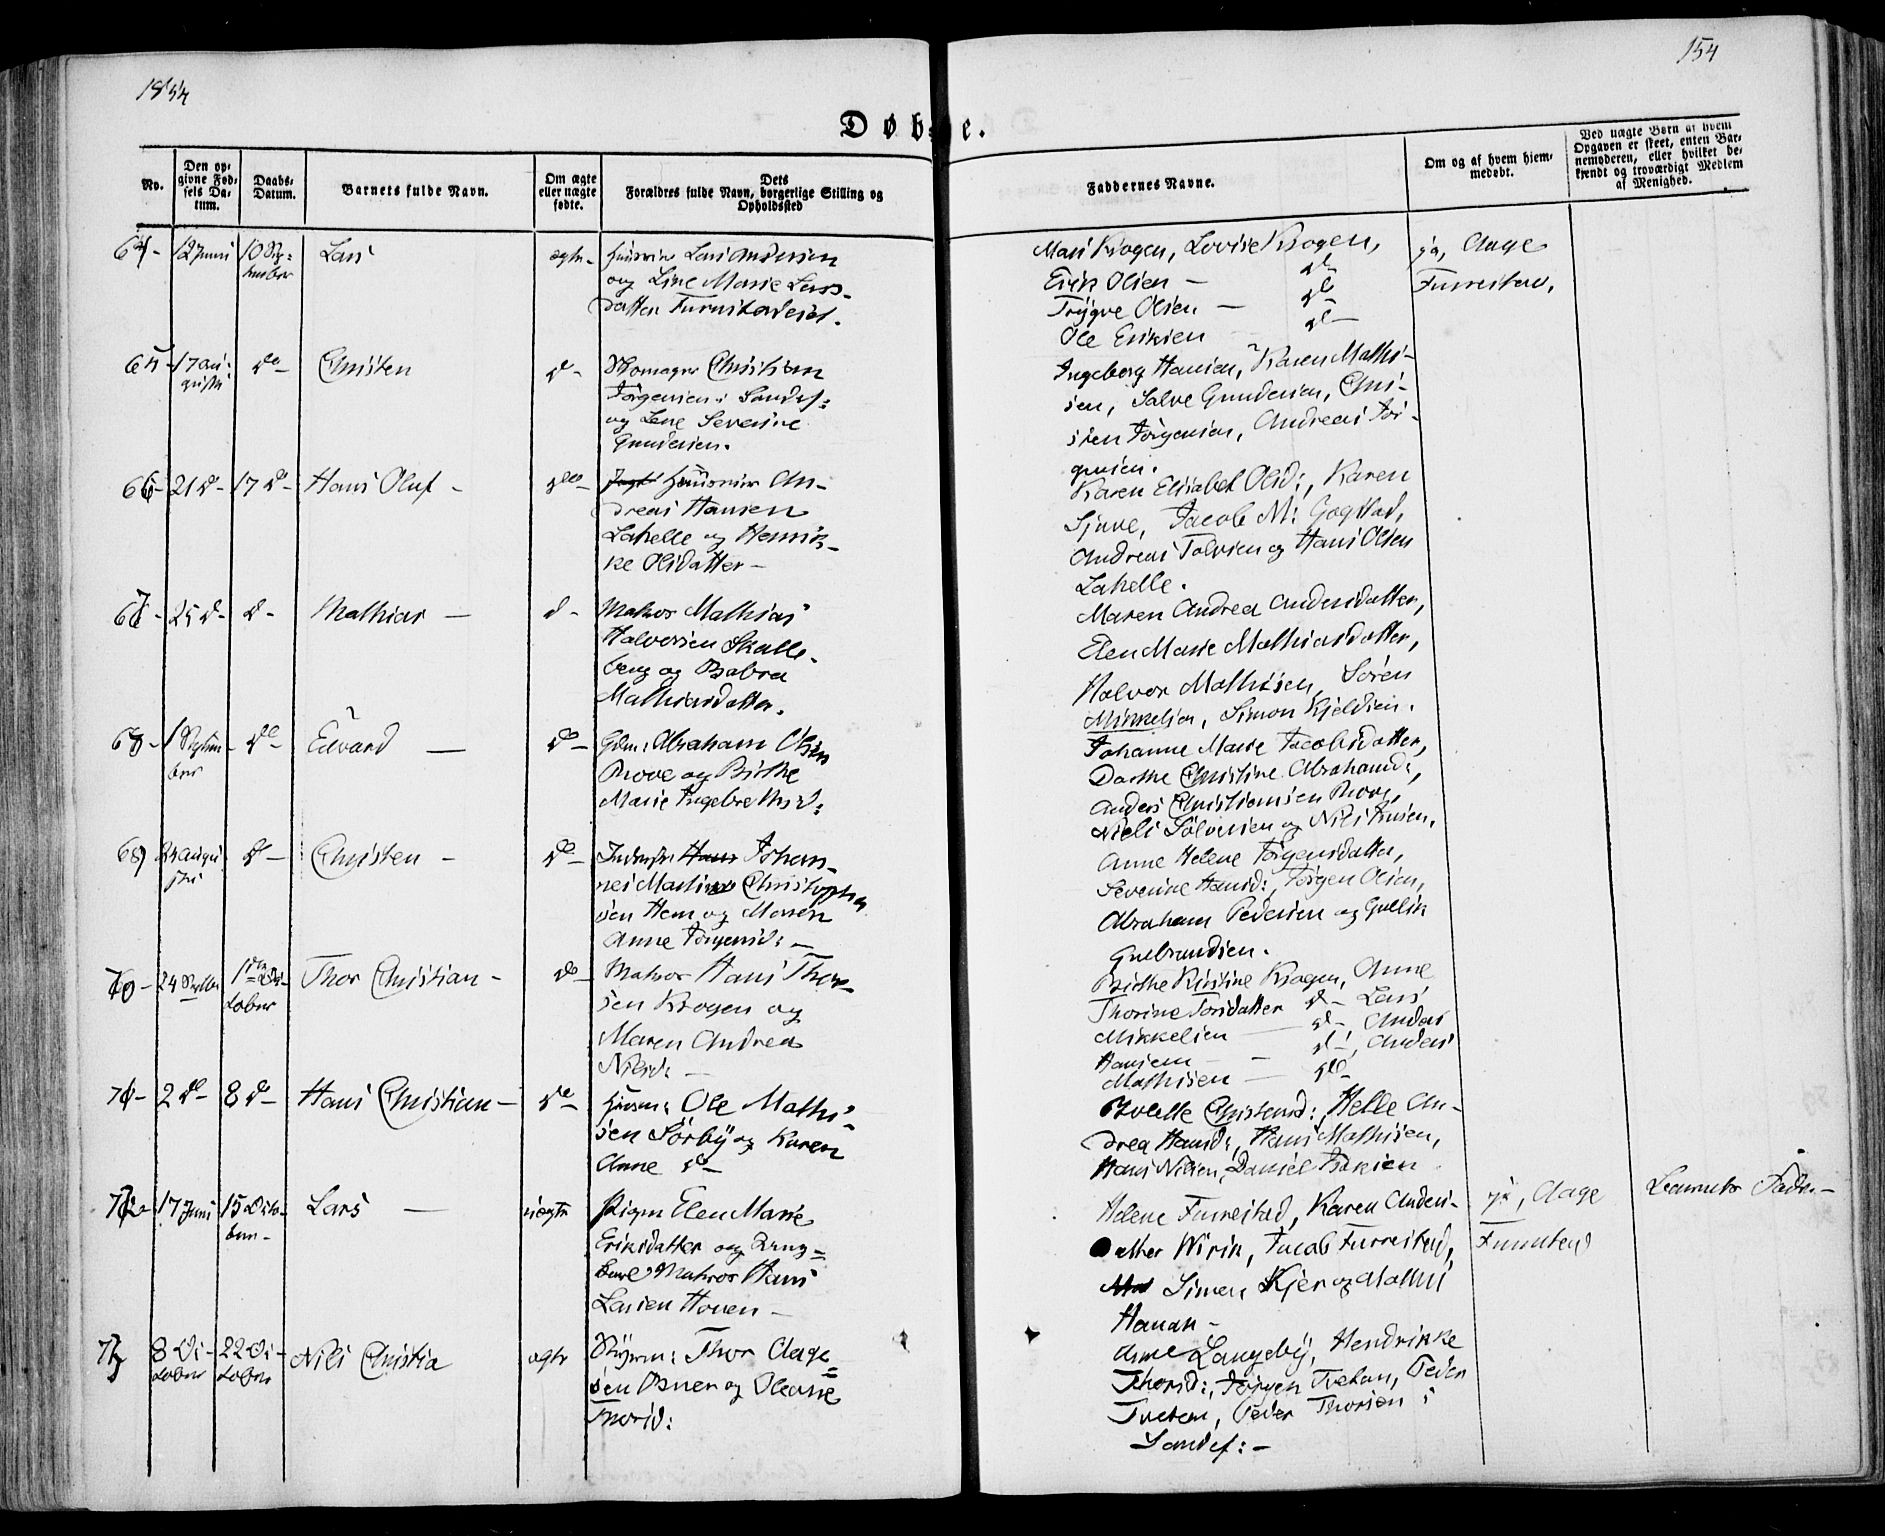 1854
154
Døbte.
No.
Den op-
givne Fød-
sels Da-
tum.
Daabs-
Datum.
Barnets fulde Navn.
Om ægte
eller uægte
fødte.
Dets
Forældres fulde Navn, borgerlige Stilling og
Opholdssted
Faddernes Navne.
Om og af hvem hjem-
medøbt.
Ved uægte Børn af hvem
Opgaven er skeet, enten Bar-
nemoderen, eller hvilket be-
kjendt og troværdigt Medlem
af Menighed.
64- 12 Juni 10 Sep- Lars ægte- Huusm Lars Andersen
tember og Line Marie Lars-
datter Furustadeiet.
Mari Krogen, Lovise Krogen, ja, Aage
Erik Olsen — do Furrestad,
Trygve Olsen — do
Ole Eriksen do —
65- 17 Au- do- Christen d- Skomager Christian
gusti Jørgensen i Sandef:
og Lene Severine
Gundersen.
Ingeborg Hansen, Karen Mathi-
sen, Salve Gundersen, Chri-
sten Jørgensen, Andreas Jør-
gensen.
66- 21 d- 17 d- Hans Oluf - do- Huusm An-
dreas Hansen
Lahelle og Henrik-
ke Olsdatter -
Karen Elisabet Olsd:, Karen
Sjuve, Jacob M: Gogstad,
Andreas Tolvsen og Hans Olsen
Lahelle.
67- 25 d- d- Mathias — d- Matros Mathias
Halvorsen Skalle-
berg og Babra
Mathiasdatter.
Maren Andrea Andersdatter,
Elen Marie Mathiasdatter,
Halvor Mathisen, Søren
Mikkelsen, Simon Kjeldsen.
68- 1 Septem- do- Edvard — do- Gdm: Abraham Olsen
ber Rove og Birthe
Marie Ingebrethsd:
Johanne Marie Jacobsdatter,
Dorthe Christine Abrahamsd:,
Anders Christiansen Rove,
Niels Sølvesen og Nils Iversen.
69 24 Augu- d- Christen - do- Inderst Hans Johan-
sti nes Martin Christopher
sen Hem og Maren
Anne Jørgensd: —
Anne Helene Jørgensdatter,
Severine Hansd:, Jørgen Olsen,
Abraham Pedersen og Gullik
Gulbrandsen.
70- 24 Septbr 1ste Oc- Thor Christian- do- Matros Hans Thor-
tober sen Krogen og
Maren Andrea
Nilsd: —
Birthe Kirstine Krogen, Anne
Thorine Torsdatter d- Lars
Mikkelsen — d-, Anders
Hansen - - d-, Anders
Mathisen — do-
71- 2 d- 8 d- Hans Christian- do- Huusm: Ole Mathi-
sen Sørby og Karen
Anne do-
Helle An-
drea Hansd:, Hans Mathisen,
Hans Nilsen, Daniel Isaksen
72- 17 Juni 15 Octo- Lars — uægte Pigen Elen Marie
ber- Eriksdatter og Ung-
karl Matros Hans
Larsen Hoven —
Helene Furrestad, Karen Anders- ja, Aage Barnets Fader-
datter Virik, Jacob Furrestad, Furrestad
Simen Kjer og Mathis
Hauan-
73 8 Oc- 22 Oc- Nils Christia ægte Styrm: Thor Aage-
tober tober sen Osner og Oleane
Thorsd:
Anne Langeby, Hendrikke
Thorsd:, Jørgen Tvetan, Peder
Tvetan, Peder Thorsen i
Sandef: —